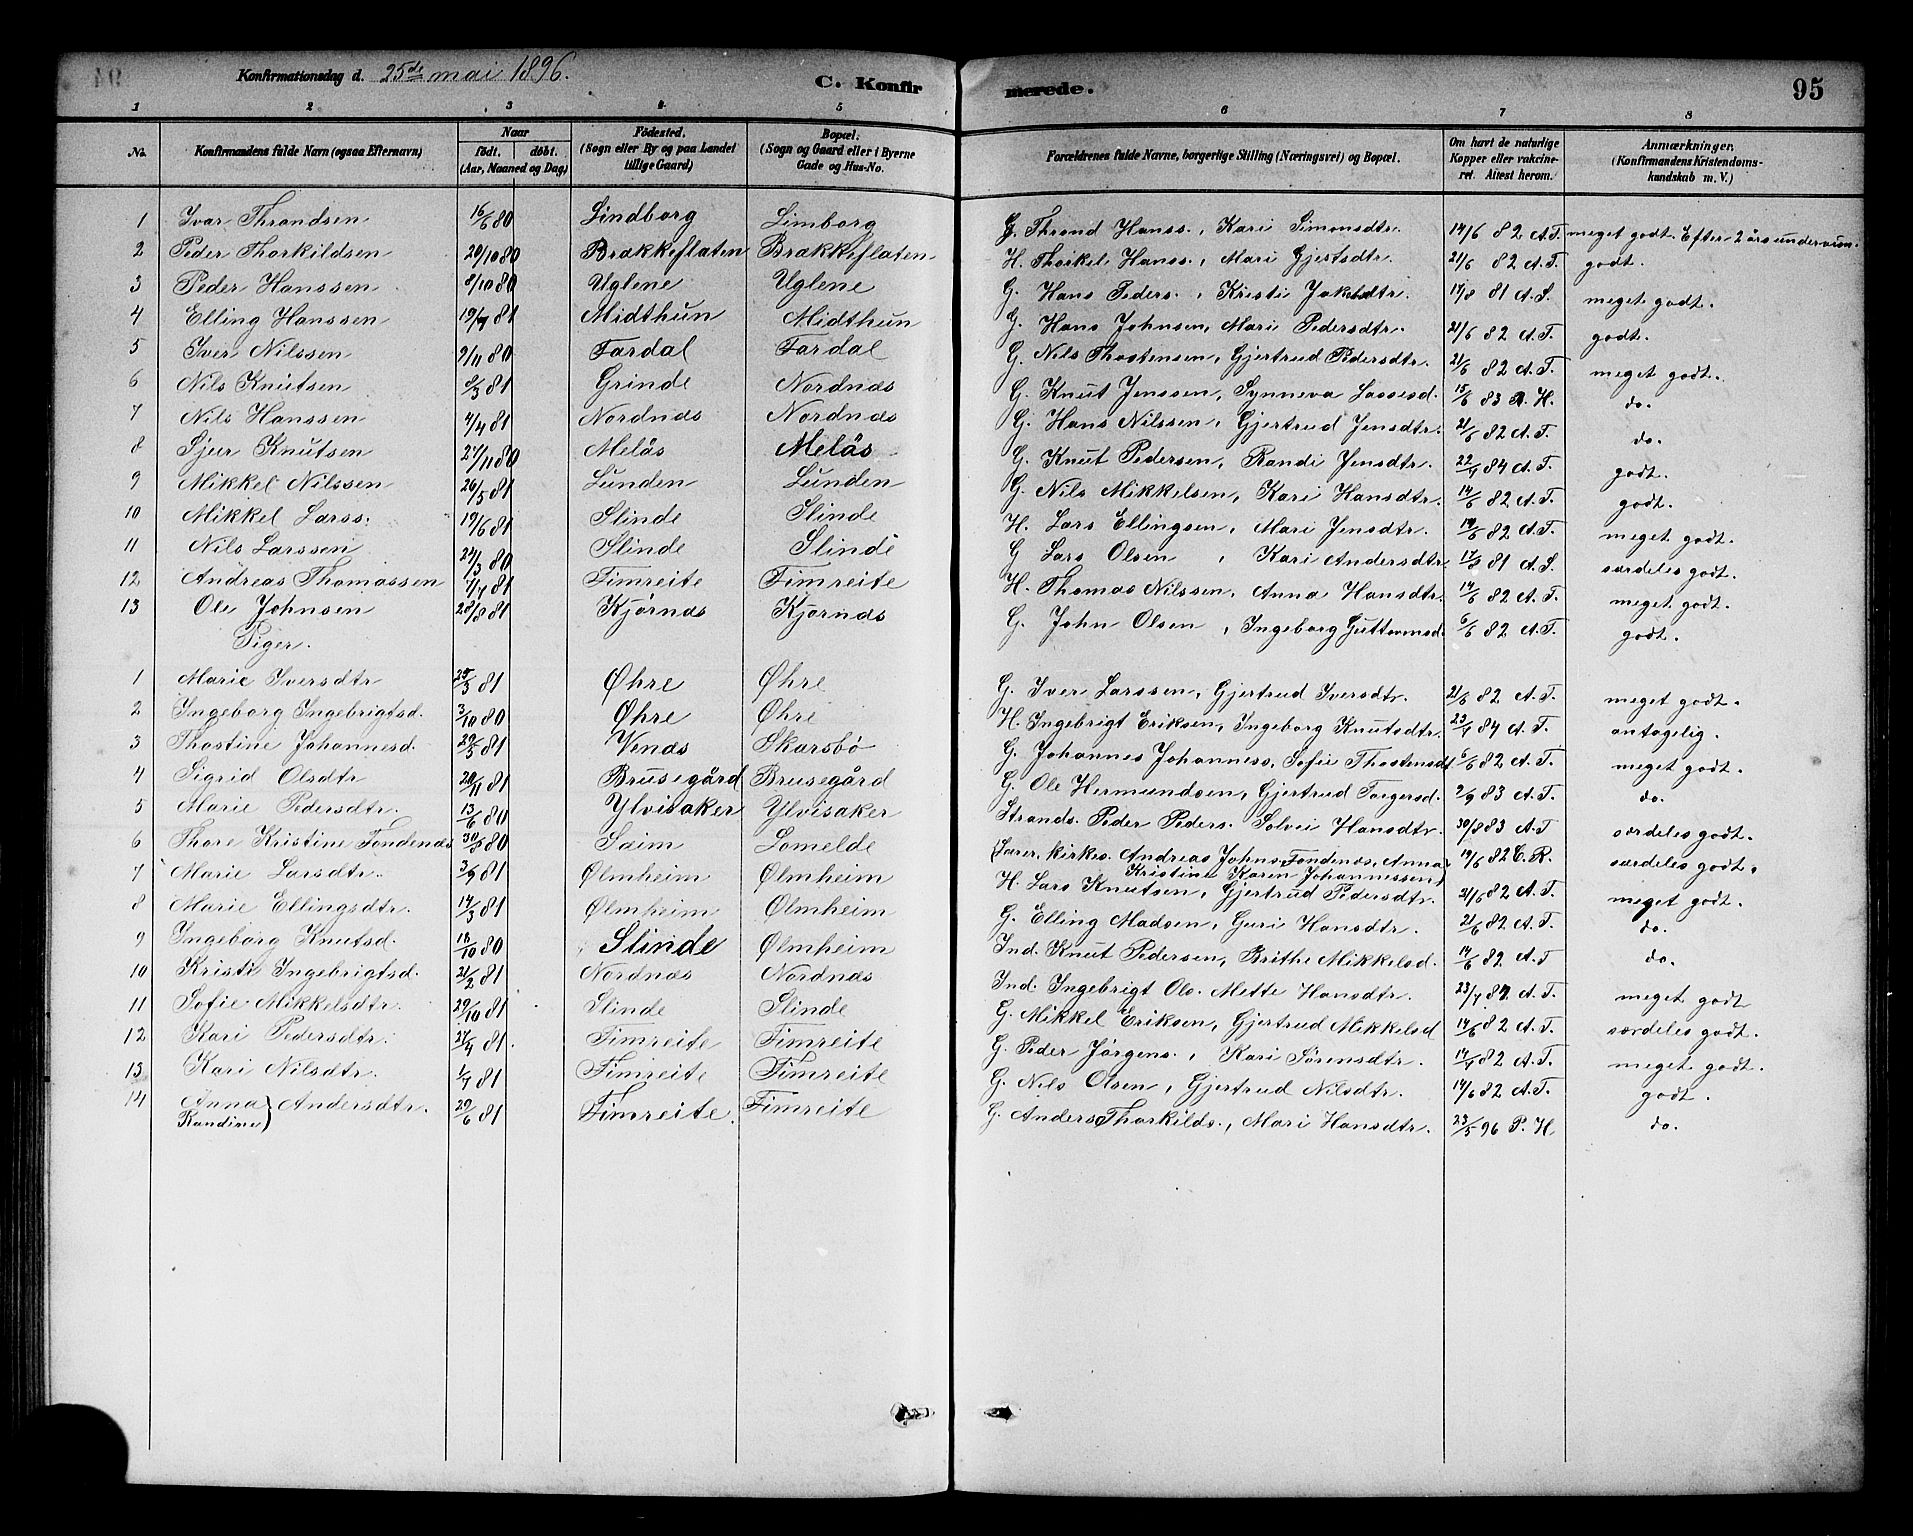 Konfirmationsdag d. 25de mai 1896.
C. Konfirmerede.
95
1 2 3 4 5 6 7 8
No. Konfirmandens fulde Navn (ogsaa Efternavn) Naar født. døbt. (Aar, Maaned og Dag) Födested. (Sogn eller By og paa Landet tillige Gaard) Bopæl. (Sogn og Gaard eller i Byerne Gade og Hus-No. Forældrenes fulde Navne, borgerlige Stilling (Næringsvei) og Bopæl. Om havt de naturlige Kopper eller vakcineret. Attest herom. Anmærkninger. (Konfirmandens Kristendomskundskab m. V.)
1 Ivar Throndsen 16/6 80 Lindborg Limborg G. Thrond Hanss., Kari Simonsdtr. 14/6 82 A.T. meget godt. Efter 2 års undervisn.
2 Peder Thorkildsen 20/10 80 Brækkeflaten Brækkeflaten H. Thorkel Hanss., Mari Gjestsdtr. 21/6 82 A.T. godt.
3 Peder Hanssen 8/10 80 Uglene Uglene G. Hans Peders., Kristi Jakobsdtr. 17/8 81 A.S. meget godt.
4 Elling Hanssen 19/7 81 Midthun Midthun G. Hans Johnsen, Mari Pedersdtr. 21/6 82 A.T. godt.
5 Iver Nilssen 9/11 80 Fardal Fardal G. Nils Thostensen, Gjertrud Pedersdtr. 21/6 82 A.T. meget godt.
6 Nils Knutsen 8/3 81 Grinde Nordnæs G. Knut Jenssen, Synneva Lassesd. 15/6 83 R.H. do.
7 Nils Hanssen 4/4 81 Nordnæs Nordnæs G. Hans Nilssen, Gjertrud Jensdtr. 21/6 82 A.T. do.
8 Sjur Knutsen 27/11 80 Meläs Meläs G. Knut Pedersen, Randi Jensdtr. 22/7 84 A.T. godt.
9 Mikkel Nilssen 26/5 81 Lunden Lunden G. Nils Mikkelsen, Kari Hansdtr. 14/6 82 A.T. godt.
10 Mikkel Larss. 19/6 81 Slinde Slinde H. Lars Ellingsen, Mari Jensdtr. 14/6 82 A.T. meget godt.
11 Nils Larssen 24/3 80 Slinde Slinde G Lars Olsen, Kari Andersdtr. 17/8 81 A.S. særdeles godt.
12 Andreas Thomassen 7/7 81 Fimreite Fimreite H. Thomas Nilssen, Anna Hansdtr. 14/6 82 A.T. meget godt.
13 Ole Johnsen 28/8 81 Kjørnæs Kjørnæs G. John Olsen, Ingeborg Guttormsd. 6/6 82 A.T. godt.
Piger.
1 Marie Iversdtr 25/3 81 Øhre Øhre G. Iver Larssen, Gjertrud Iversdtr. 21/6 82 A.T. meget godt.
2 Ingeborg Ingebrigtsd. 3/10 80 Øhre Øhre H. Ingebrigt Eriksen, Ingeborg Knutsdtr. 23/7 84 A.T. antagelig.
3 Thostine Johannesd. 29/5 81 Venæs Skarsbö G. Johannes Johanness, Sofie Thostensdt. 6/6 82 A.T. meget godt.
4 Sigrid Olsdtr 20/11 81 Brusegård Brusegård G. Ole Hermundsen, Gjertrud Torgersd. 2/9 83 A.T. do.
5 Marie Pedersdtr. 13/6 80 Ylvisaker Ylvisaker Strands. Peder Peders. Solvei Hansdtr. 30/8 83 A.T særdeles godt.
6 Thore Kristine Fondenæs 30/5 80 Saim Lomelde (Lærer, kirkes. Andreas Johns. Fondenæs, Anna
Kristine Karen Johannessen) 19/6 82 C.R. særdeles godt.
7 Marie Larsdtr. 3/9 81 Ølmheim Ølmheim H. Lars Knutsen, Gjertrud Pedersdtr. 21/6 82 A.T. meget godt.
8 Marie Ellingsdtr. 14/3 81 Ølmheim Ølmheim G. Elling Madsen, Guri Hansdtr. 21/6 82 A.T. do.
9 Ingeborg Knutsd. 18/10 80 Slinde Ølmheim Ind. Knut Pedersen, Brithe Mikkelsd. 14/6 82 A.T do.
10 Kristi Ingebrigtsd. 21/2 81 Nordnæs Nordnæs Ind. Ingebrigt Ols. Mette Hansdtr. 23/7 84 A.T. meget godt
11 Sofie Mikkelsdtr. 29/10 81 Slinde Slinde G. Mikkel Eriksen, Gjertrud Mikkelsd 14/6 82 A.T. særdeles godt.
12 Kari Pedersdtr. 27/4 81 Fimreite Fimreite G. Peder Jørgens., Kari Sörensdtr. 14/7 82 A.T. meget godt.
13 Kari Nilsdtr. 1/7 81 Fimreite Fimreite G. Nils Olsen, Gjertrud Nilsdtr. 14/6 82 A.T. godt.
14 Anna Andersdtr. 29/6 81 Fimreite. Fimreite G. Anders Thorkilds., Mari Hansdtr. 23/5 96 P.H do.
Randine)